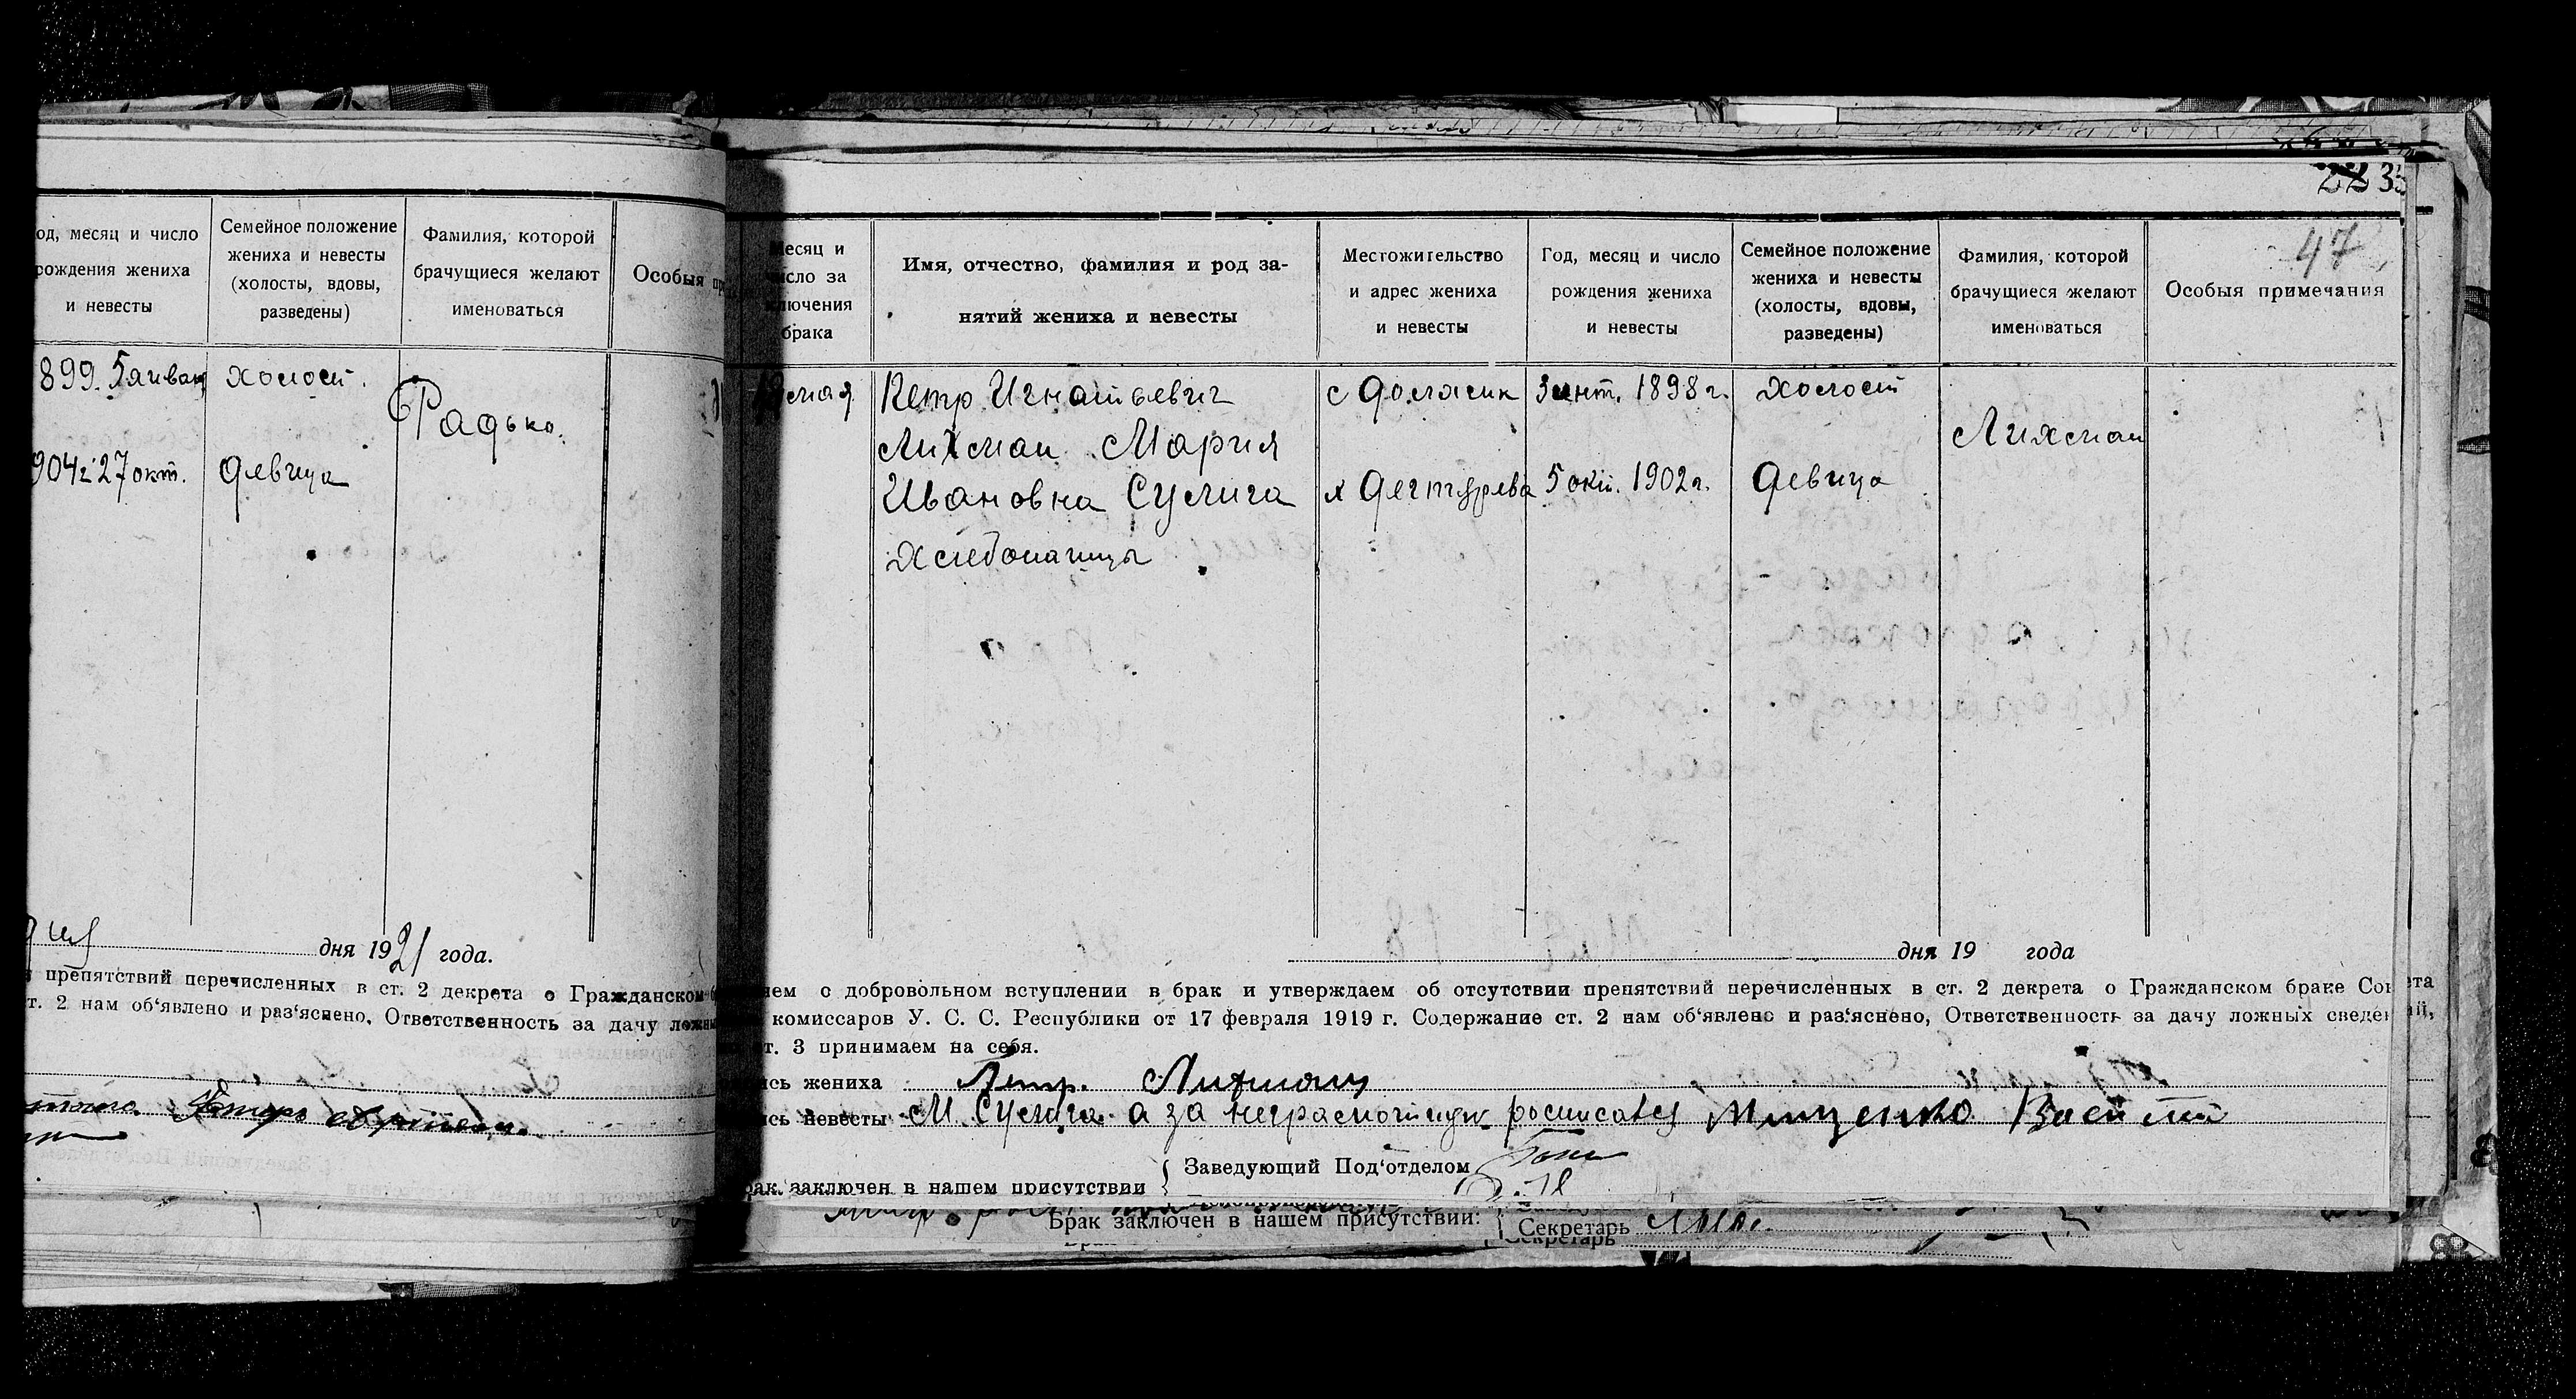 од, месяц и число
рождения жениха
и невесты
Семейное положение
жениха и невесты
(холосты, вдовы,
разведены)
Фамилия, которой
брачущиеся желают
именоваться
Особыя пр
899. 5 январ
холост.
Радько.
904г 27 окт.
девица
дня 1921 года.
препятствий перечисленных в ст. 2 декрета о Гражданском
т. 2 нам об‘явлено и раз‘яснено, Ответственность за дачу ложн
22 33
47
Месяц и
число за
ключения
брака
Имя, отчество, фамилия и род за-
нятий жениха и невесты
Местожительство
и адрес жениха
и невесты
Год, месяц и число
рождения жениха
и невесты
Семейное положение
жениха и невесты
(холосты, вдовы,
разведены)
Фамилия, которой
брачущиеся желают
именоваться
Особыя примечания
мая
Петр Игнатьевич
Лихман Мария
Ивановна Сулига
Хлебопашцы
с
х
1898 г.
5 окт. 1902 г.
холост
девица
Лихман
дня 19 года
ием о добровольном вступлении в брак и утверждаем об отсутствии препятствий перечисленных в ст. 2 декрета о Гражданском браке Сов ета
комиссаров У. С. С. Республики от 17 февраля 1919 г. Содержание ст. 2 нам об‘явлено и раз‘яснено, Ответственность за дачу ложных сведен ий,
т. 3 принимаем на себя.
ись жениха Петр. Лихман
ись невесты М Сулига а за неграмотную росписався
Заведующий Под‘отделом
рак заключен в нашем присутствии
Брак заключен в нашем присутствии:
Секретарь
Секретарь